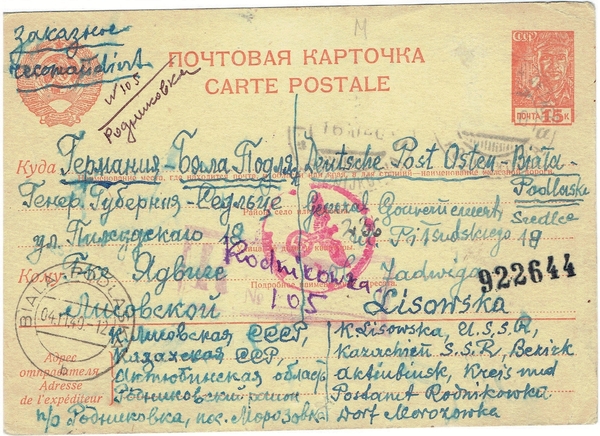 Заказное
recomandiert
N 105
Родниковка
ПОЧТОВАЯ КАРТОЧКА
CARTE POSTALE
СССР
ПОЧТА 15 К
Куда Германия - Бяла Подля
Deutsche Post Osten - Biała-
Podlaska
Генер. Губерния - Седльце
General Gouvernement
Siedlce
ул. Пилсудского 19
Pilsudskiego 19
Кому Г-же Ядвиге
Jadwiga
Rodnikowka
105
922644
Лисовской
Lisowska
BIALA PODLASKA
04.11.40-12
Адрес
отправителя
Adresse de
l'expéditeur
К.Лисовская СССР,
Казахская ССР,
Актюбинская область
Родниковский район
п/о Родниковка, пос. Морозовка
K. Lisowska, U.S.S.R,
Kazachien S.S.R, Bezirk
Aktiubinsk, Kreis und
Postamt Rodnikowka
Dorf Morozowka